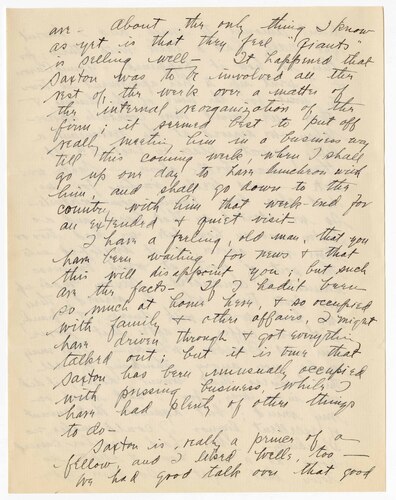 are. About the only thing I know
as yet is that they feel "Giants"
is selling well — It happened that
Saxton was to be involved all the
rest of the week over a matter of
the internal reorganization of the
firm; it seemed best to put off
really meeting him in a business way
till this coming week, when I shall
go up one day to have luncheon with
him, and shall go down to the
country with him that week-end for
an extended & quiet visit.
I have a feeling, old man, that you
have been waiting for news & that
this will disappoint you; but such
are the facts — If I hadn't been
so much at home here, & so occupied
with family & other affairs, I might
have driven through & got everything
talked out; but it is true that
Saxton has been unusually occupied
with pressing business, while I
have had plenty of other things
to do —
Saxton is really a prince of a
fellow and I liked Wells, too —
We had good talk over that good